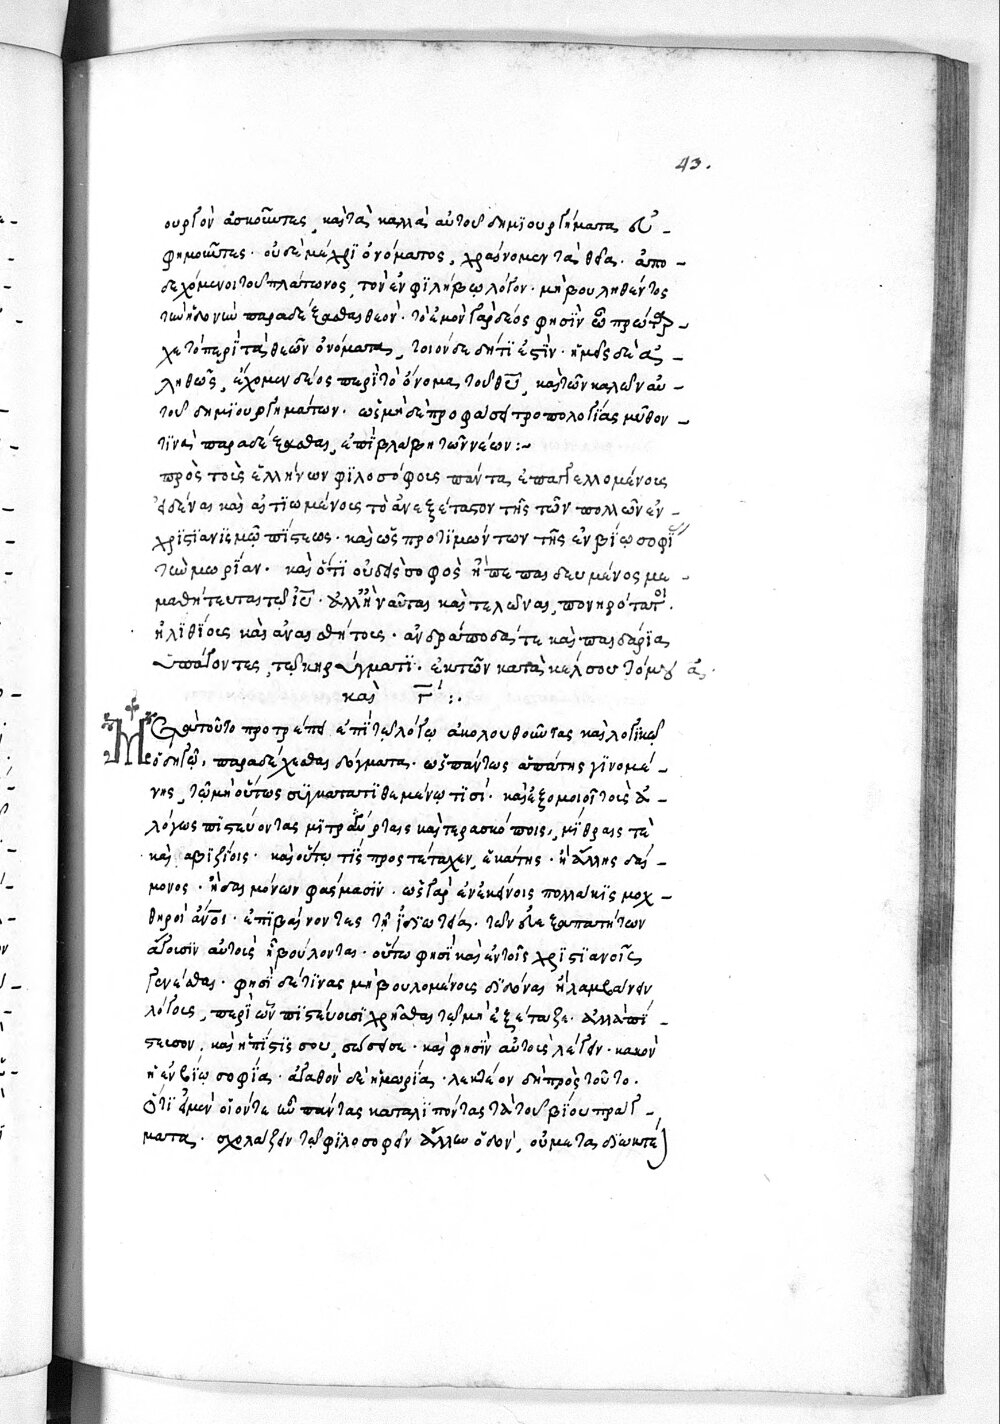 43.
ουργὸν ἀσκοῦντες, καὶ τὰ καλλὰ αὐτοῦ δημϊουργήματα εὐ -
φημοῦντες· οὐδὲ μέχρϊ ὀνόματος, χραίνομεν τὰ θεῖα· ἀπο -
δεχόμενοι τοῦ πλάτωνος, τὸν ἐν φιλήβῳ λόγον· μὴ βουληθέντος
τὴν ἡδονὴν παραδέξασθαι θεὸν· τὸ ἐμὸν γὰρ δέος φησῒν ὦ πρώταρ -
χε τὸ περῒ τὰ θεῶν ὀνόματα, τοιόνδε δήτϊ ἐστὶν· ἡμεῖς δὲ ἀ -
ληθῶς, ἔχομεν δέος περῒ τὸ ὄνομα τοῦ θυ, καὶ τῶν καλῶν αὐ -
τοῦ δημϊουργημάτων· ὡς μὴ δὲ προφάσει τροπολογίας μῦθον
τϊνὰ παραδέξασθαι, ἐπῒ βλάβη τῶν νέων :~
πρὸς τοὺς ἑλλήνων φϊλοσόφοις πάντα, ἐπαγελλομένοις
εἰδέναι καὶ αἰτϊωμένοις τὸ ἀνεξέταστον τῆς τῶν πολλῶν ἐν -
χρϊστϊανϊσμῷ πίστεως· καὶ ὡς προτϊμόντων τῆς ἐν βίῳ σοφί
τὴν μωρίαν· καὶ ὅτϊ οὐδεὶς σοφὸς ἢ πεπαιδευμένος με -
μαθήτευται τῷ ιυ· ἀλλ' ἢ ναῦται καὶ τελῶναι, πονηρότατοι.
ἠλϊθίοις καὶ ἀναισθήτοις· ἀνδράποδά τε καὶ παιδάρϊα,
ὑπάγοντες, τῷ κηρύγματϊ· ἐκ τῶν κατὰ κέλσου τόμου ά,
καὶ γ΄ :.
Μετὰ τοῦτο προτρέπει ἐπῒ τῷ λόγῳ ἀκολουθοῦντας καὶ λογϊκῷ
ὁδηγῷ, παραδέχεσθαι δόγματα· ὡς πάντως ἀπάτης γϊνομέ -
νης, τῷ μὴ οὕτως συγκατατϊθεμένῳ τϊσί· καὶ ἐξομοιοῖ τοὺς ἀ -
λόγως πϊστεύοντας μϊτραγύρταις καὶ τερασκόποις, μίθραις τὲ
καὶ σαβϊζΐοις· καὶ οὕτω τῒς προστέταχεν, ἑκάτης· ἢ ἄλλης δαί -
μονος· ἢ δαιμόνων φάσμασϊν· ὡς γὰρ ἐν ἐκείνοις πολλακῒς μοχ -
θηροὶ ἄνοι· ἐπϊβαίνοντες τῆ ἰδϊωτεία· τῶν εὐεξαπατήτων
ἄγουσϊν αὐτοὺς ἣ βούλονται· οὕτω φησῒ καὶ ἐν τοῖς χρϊστϊανοῖς
γενέσθαι· φησῒ δὲ τϊνας μὴ βουλομένοις δϊδόναι ἢ λαμβάνειν
λόγοις, περῒ ὧν πϊστεύουσϊ χρῆσθαι τῷ μὴ ἐξέταζε· ἀλλὰ πί -
στευσον, καὶ ἡ πίστϊς σου, σώσει σε· καὶ φησῒν αὐτοὺς λέγειν· κακὸν
ἡ ἐν βίῳ σοφία· ἀγαθὸν δὲ ἡ μωρία· λεκτέον δὴ πρὸς τοῦτο.
ὅτϊ εἰ μὲν οἷόντε ἦν πάντας καταλϊπόντας τὰ τοῦ βίου πράγ -
ματα· σχολάζειν τῷ φιλοσοφεῖν ἄλλην ὁδὸν, οὐ μεταδϊωκτέ